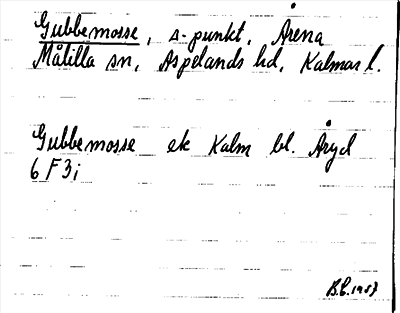 Gubbemosse, s-punkt, Årena
Målilla sn, Aspelands hd, Kalmar l.
Gubbemosse ek Kalm bl. Åryd
6 F 3i